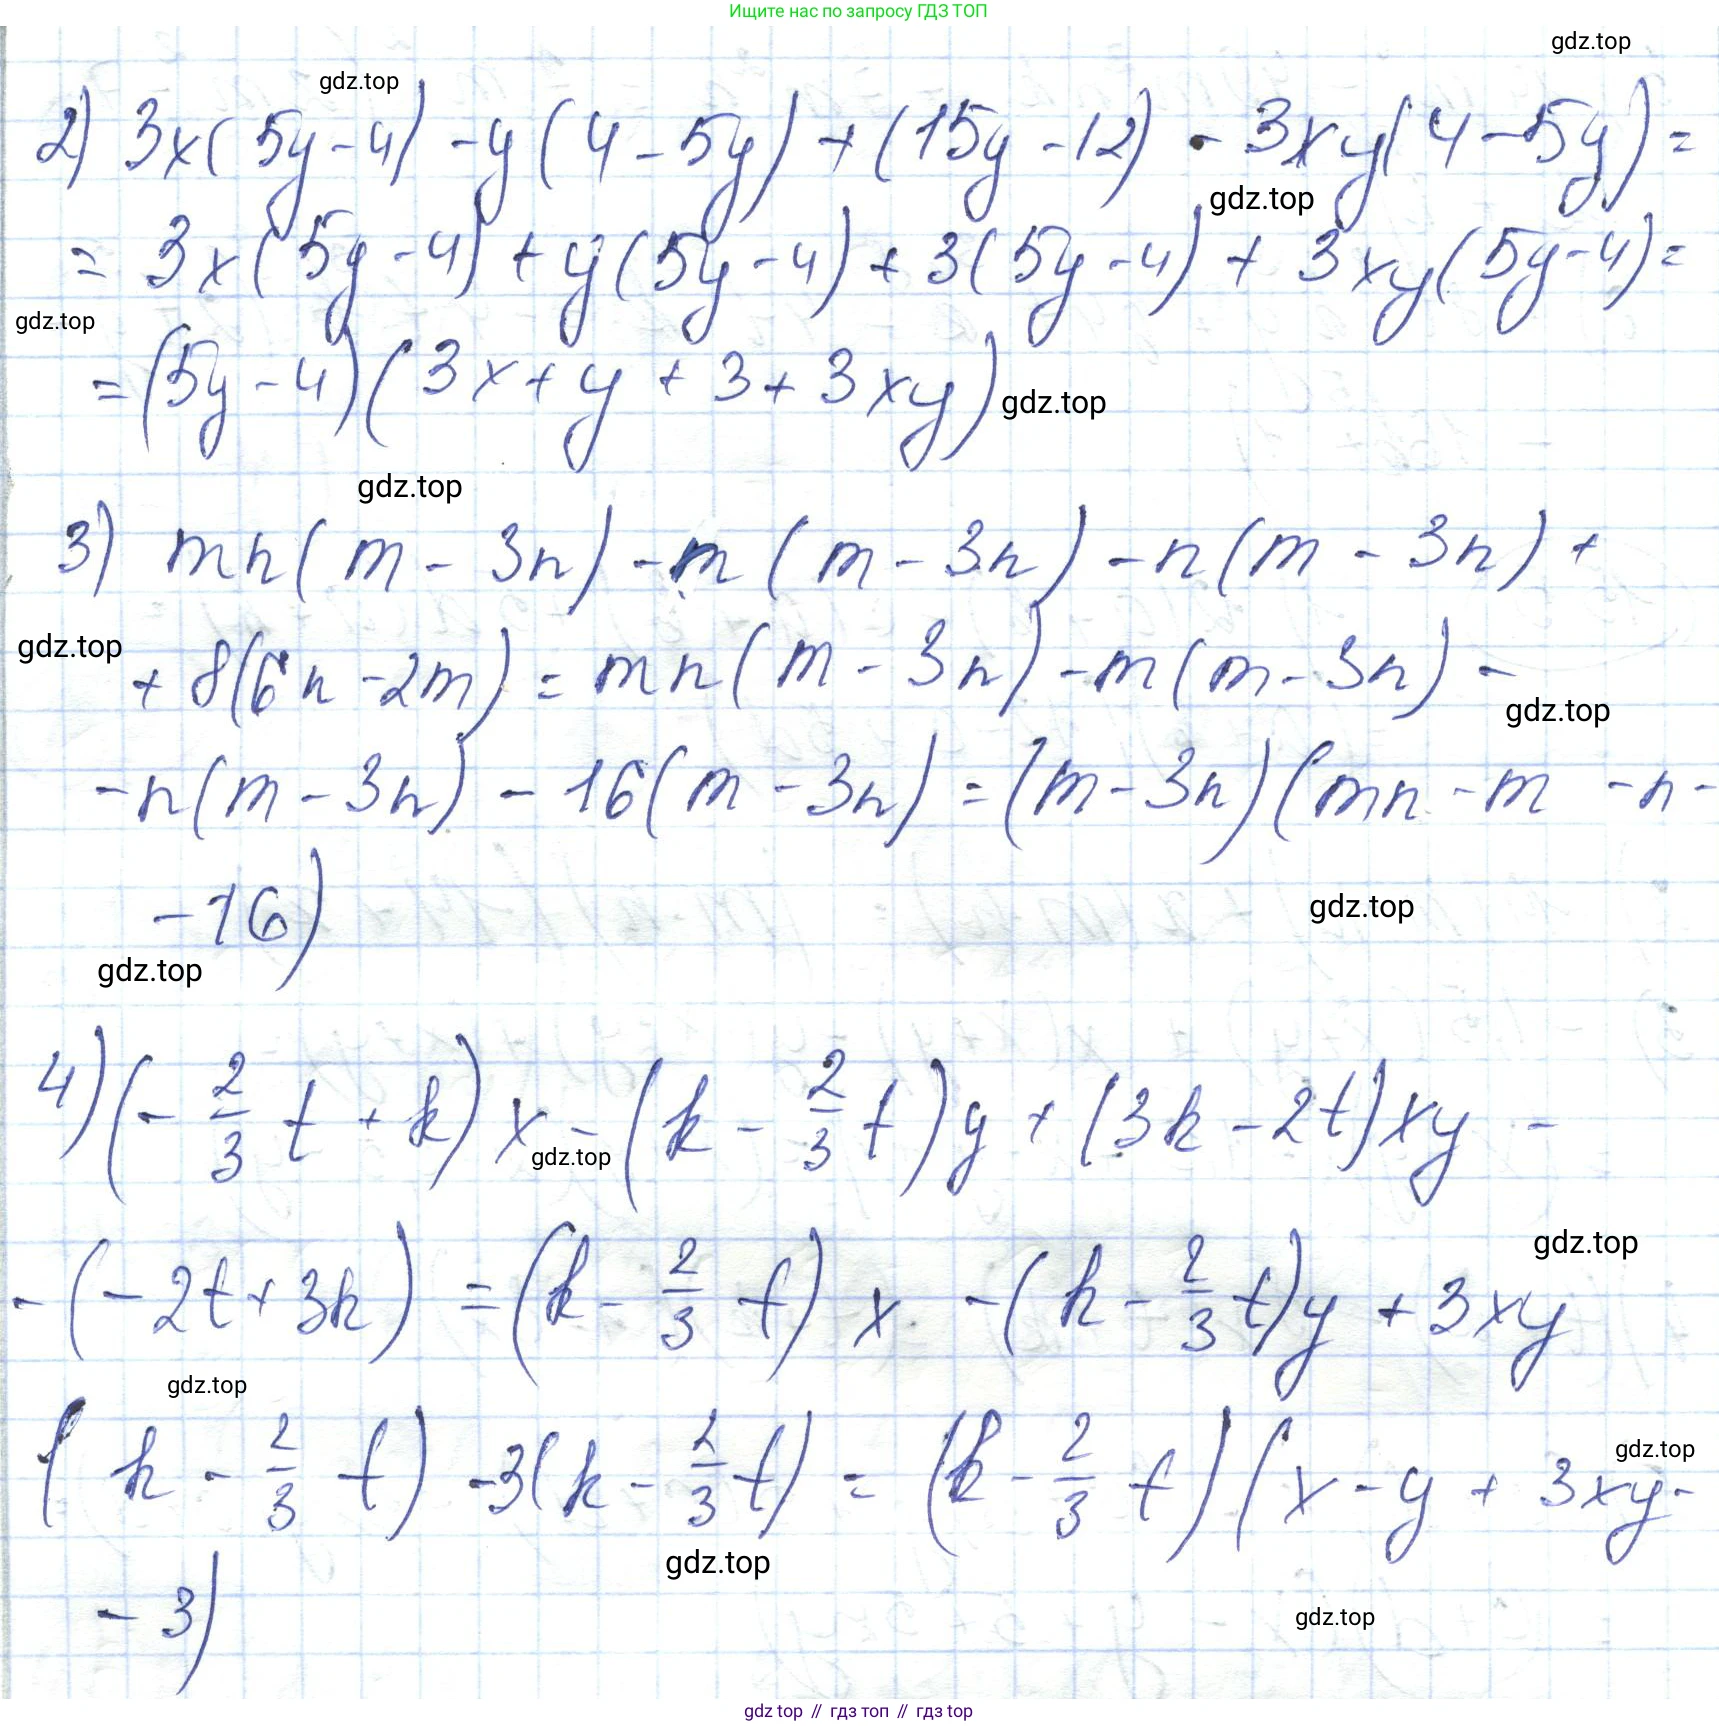 Ищите нас по запросу ГДЗ ТОП
gdz.top
gdz.top
2) 3x(5y-4) - y(4-5y) + (15y-12) - 3xy(4-5y) =
gdz.top
= 3x(5y-4) + y(5y-4) + 3(5y-4) + 3xy(5y-4) =
gdz.top
= (5y-4)(3x+y+3+3xy)
gdz.top
gdz.top
3) mn(m-3n) - m(m-3n) - n(m-3n) +
gdz.top
+ 8(6n-2m) = mn(m-3n) - m(m-3n) -
gdz.top
- n(m-3n) - 16(m-3n) = (m-3n)(mn-m-n-
-16)
gdz.top
gdz.top
4) (-2/3 t + k)x - (k - 2/3 t)y + (3k-2t)xy -
gdz.top
gdz.top
-(-2t+3k) = (k - 2/3 t)x - (k - 2/3 t)y + 3xy
gdz.top
(k - 2/3 t) - 3(k - 2/3 t) = (k - 2/3 t)(x-y+3xy-
gdz.top
gdz.top
-3)
gdz.top
gdz top // гдз топ // гдз top